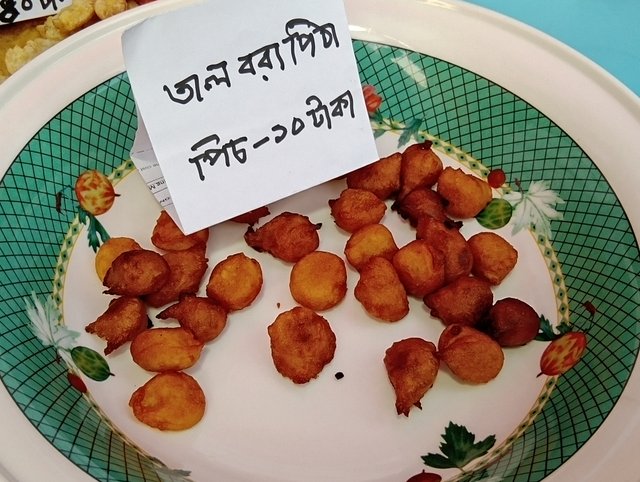 তাল বরা পিঠা
পিচ - ১০ টাকা